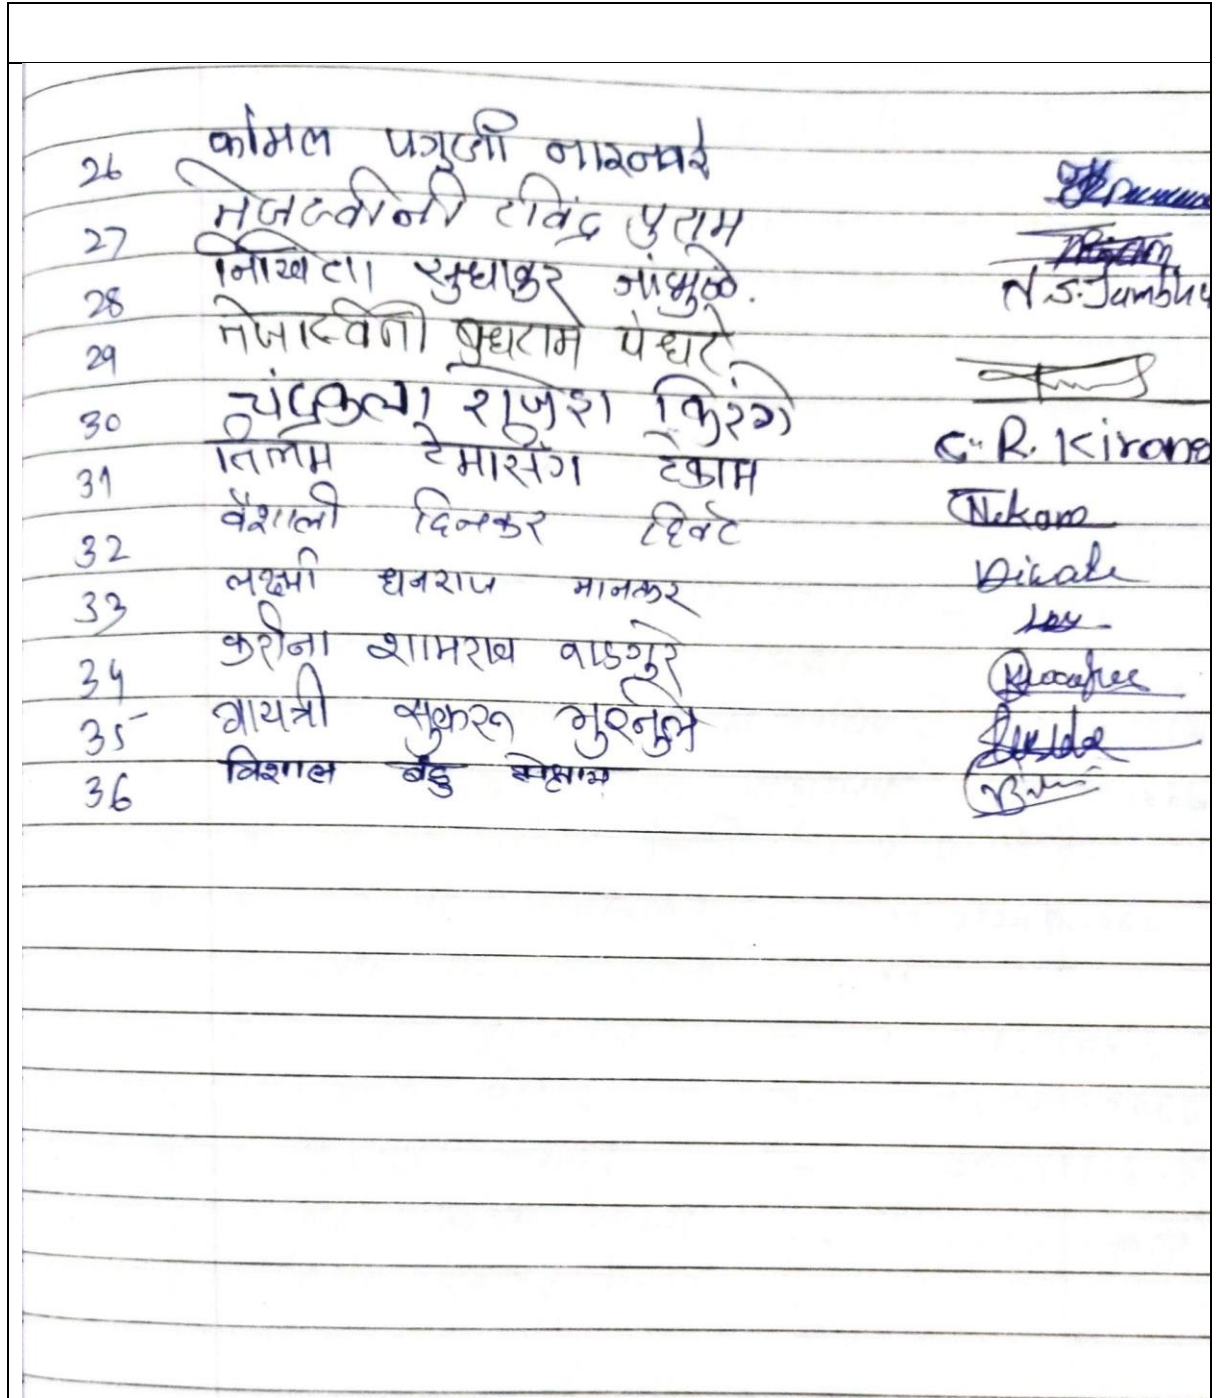 26 कोमल पगुजी नारनवरे
27 तेजस्वीनी रविंद्र पुराम
28 निखिता सुधाकर जांभुळे. N.S.Jambhu
29 तेजस्विनी बुधराम पंधरे
30 चंद्रकला राजेश किरंगे C. R. Kirang
31 तिलम टेमासिंग टेकाम
32 वैशाली दिनकर दिवटे Diwate
33 लक्ष्मी धनराज मानकर
34 करीना शामराव वाडगुरे
35 गायत्री सुकरु गुरनुले
36 विशाल बंडु